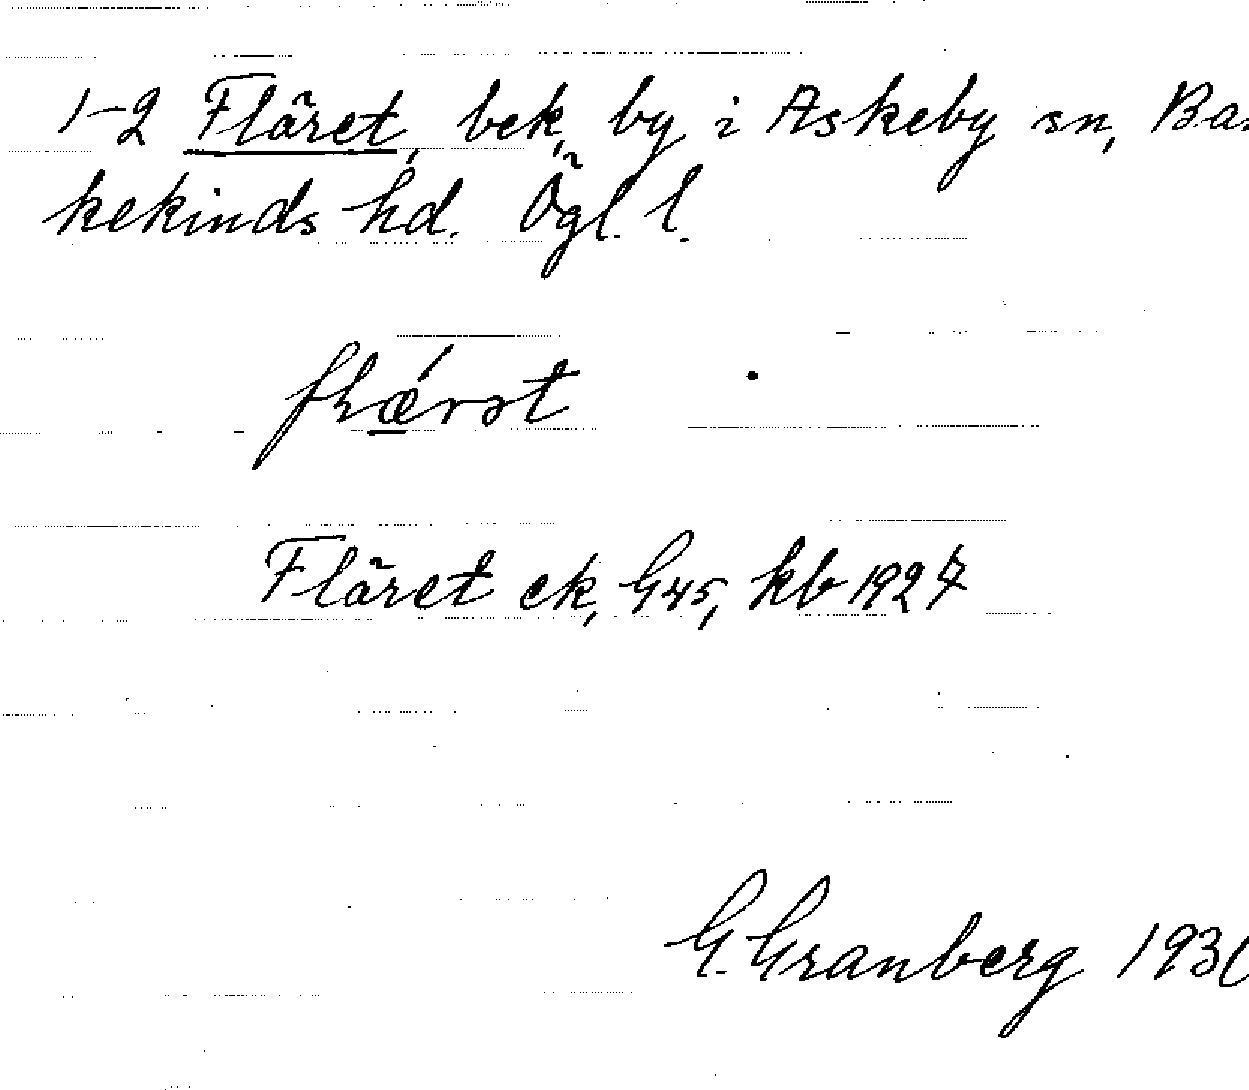 1-2 Fläret, bek, by i Askeby sn, Ba
kekinds hd. Ögl. l.
Fläret ek, G45, kb 1927
G. Granberg 193